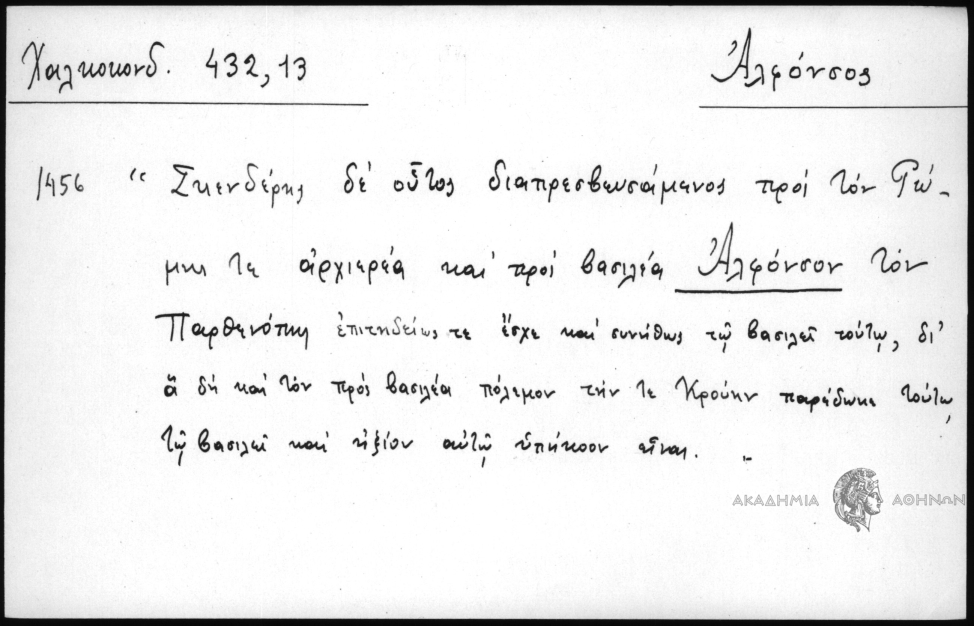 Χαλκοκονδ. 432,13
Ἀλφόνσος
1456 “ Σκενδέρης δέ οὗτος διαπρεσβευσάμενος πρός τόν Ῥώ-
μης τε ἀρχιερέα καί πρός βασιλέα Ἀλφόνσον τόν
Παρθενόπης ἐπιτηδείως τε ἔσχε καί συνήθως τῷ βασιλεῖ τούτῳ, δι’
ἅ δή καί τόν πρός βασιλέα πόλεμον τήν τε Κρούην παρέδωκε τούτῳ
τῷ βασιλεῖ καί ἠξίου αὐτῷ ὑπήκοον εἶναι. „
ΑΚΑΔΗΜΙΑ ΑΘΗΝΩΝ